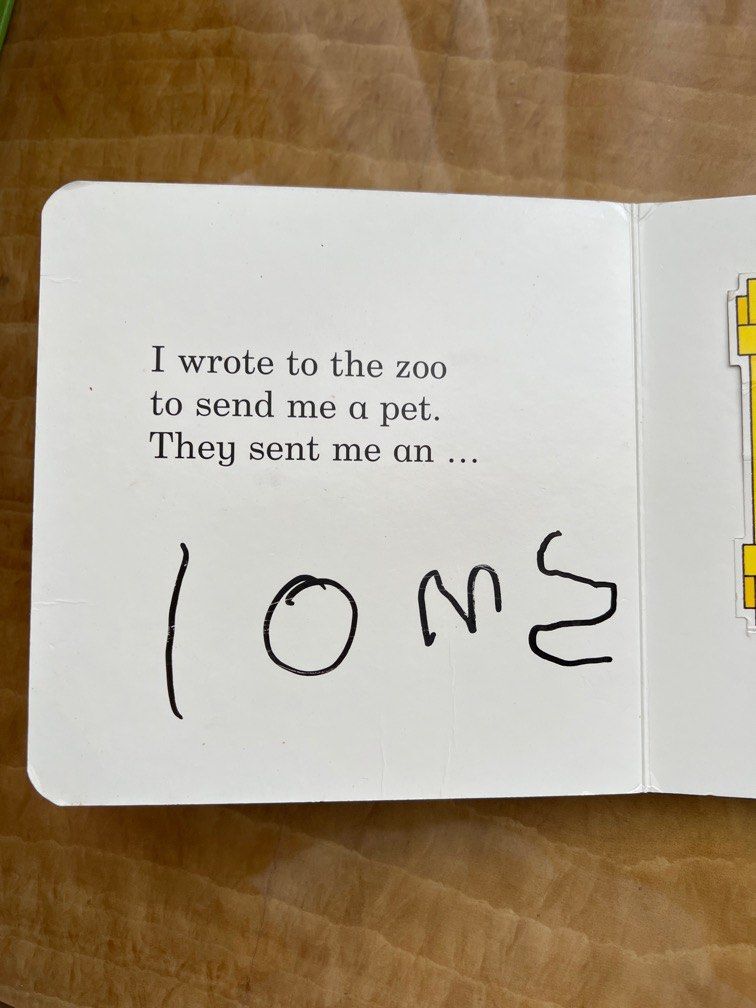 I wrote to the zoo
to send me a pet.
They sent me an ...